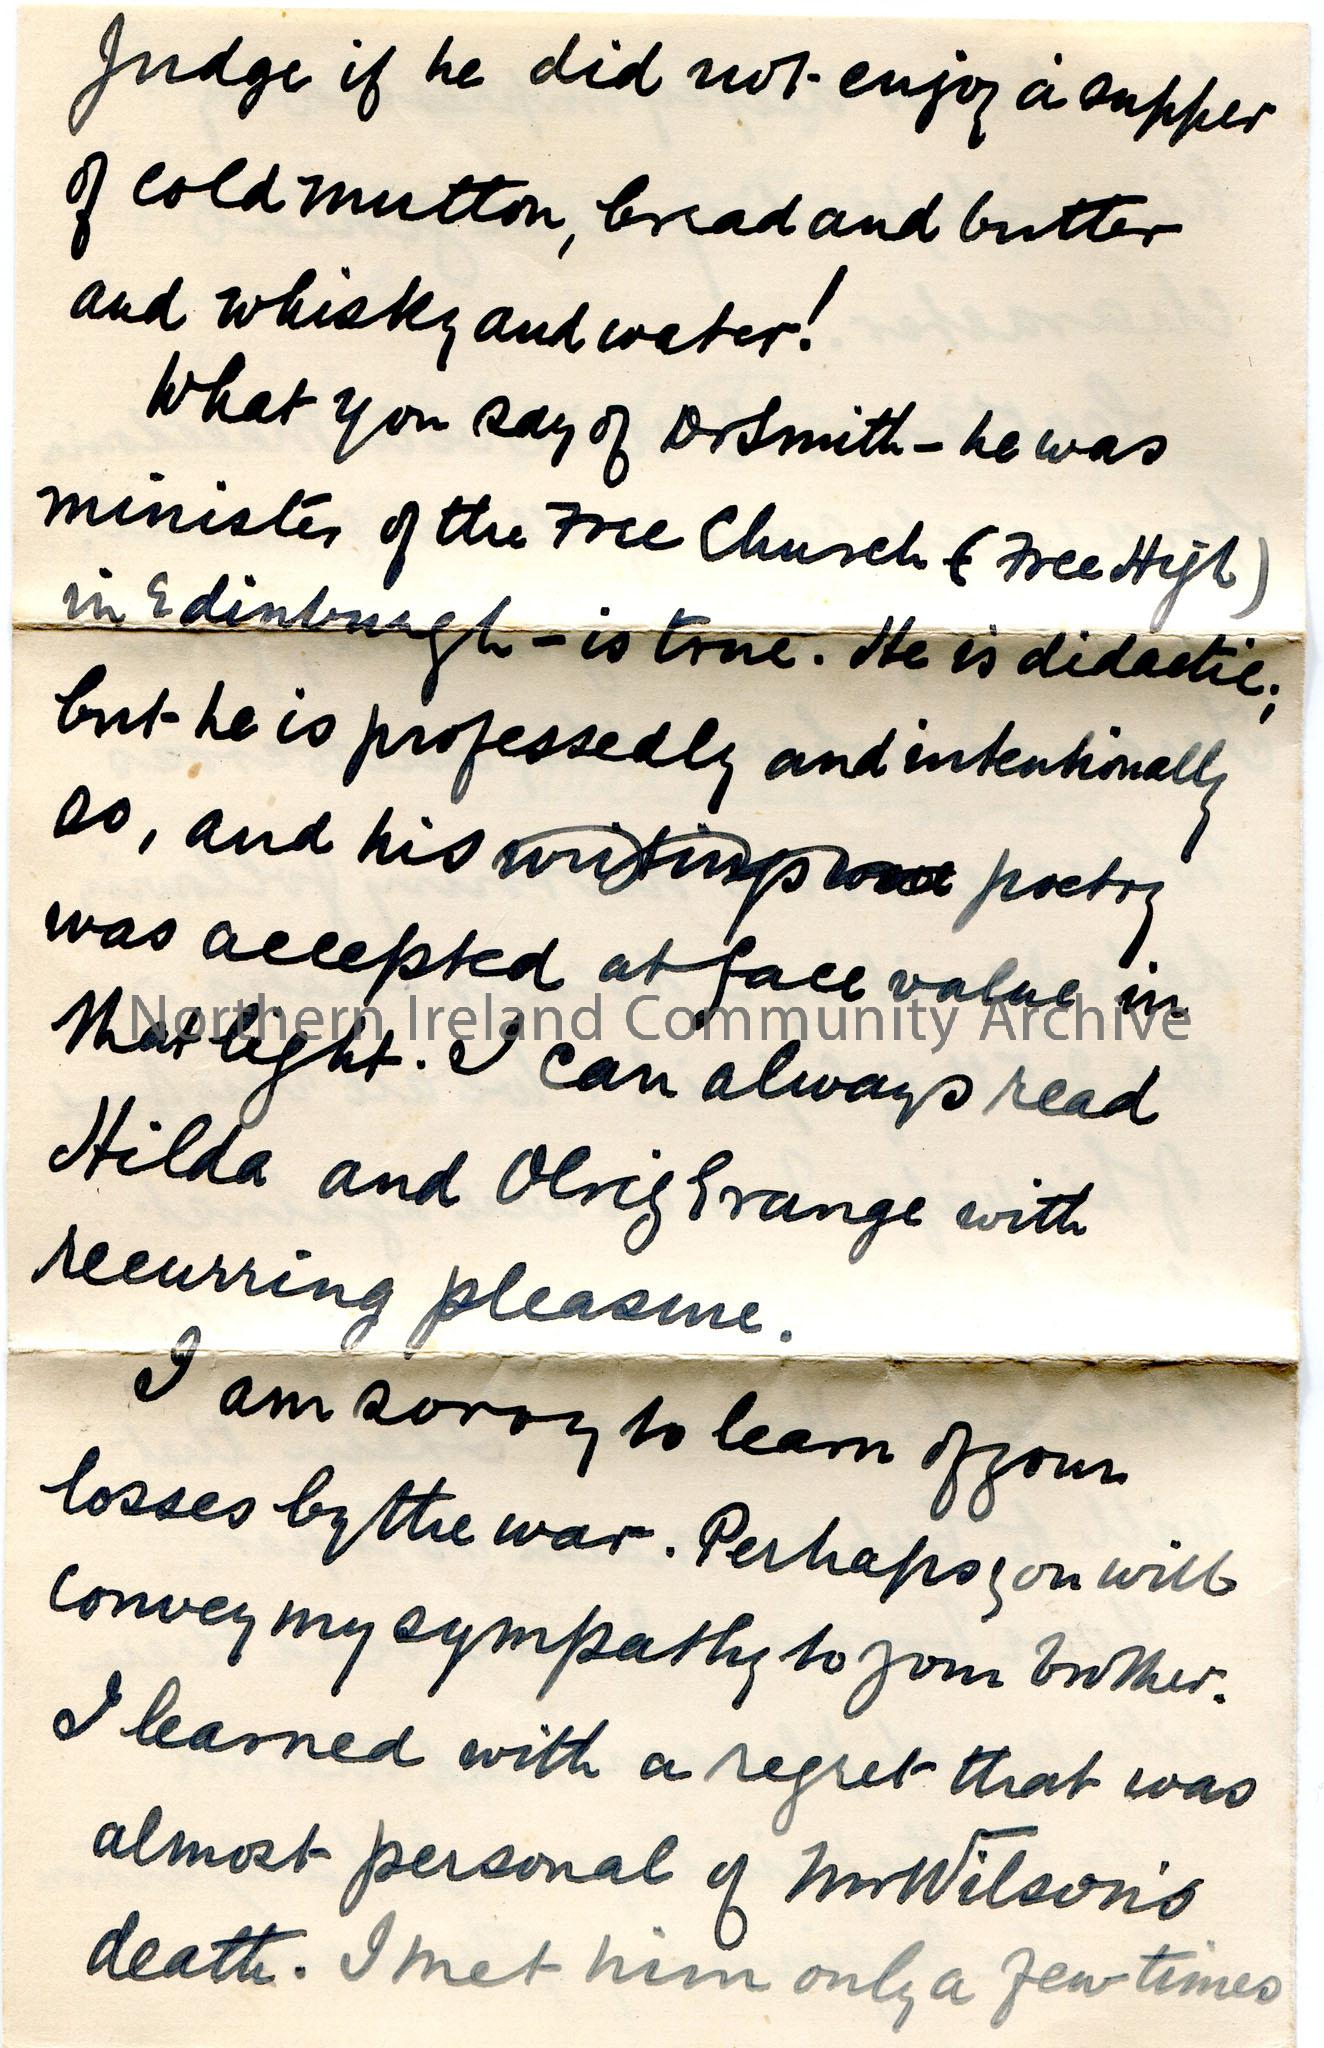 Judge if he did not enjoy a supper
of cold mutton, bread and butter
and whisky and water!
What you say of Dr Smith – he was
minister of the Free Church (Free High)
in Edinburgh – is true. He is didactic;
but he is professedly and intentionally
so, and his writings poetry
was accepted at face value in
that light. I can always read
Hilda and Olrig Grange with
recurring pleasure.
I am sorry to learn of your
losses by the war. Perhaps you will
convey my sympathy to your brother.
I learned with a regret that was
almost personal of Mr Wilson's
death. I met him only a few times
Northern Ireland Community Archive